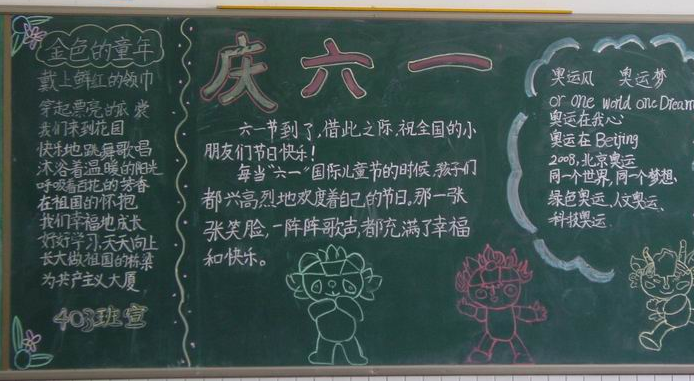 金色的童年
戴上鲜红的领巾
穿起漂亮的衣裳
我们来到花园
快乐地跳舞歌唱
沐浴着温暖的阳光
呼吸着百花的芳香
在祖国的怀抱
我们幸福地成长
好好学习,天天向上
长大做祖国的栋梁
为共产主义大厦
403班宣
庆六一
六一节到了,借此之际,祝全国的小
朋友们节日快乐!
每当“六一”国际儿童节的时候,孩子们
都兴高烈地欢度着自己的节日,那一张
张笑脸,一阵阵歌声,都充满了幸福
和快乐。
奥运风 奥运梦
or one world one Dream
奥运在我心
奥运在Beijing
2008,北京奥运
同一个世界,同一个梦想,
绿色奥运,人文奥运,
科技奥运